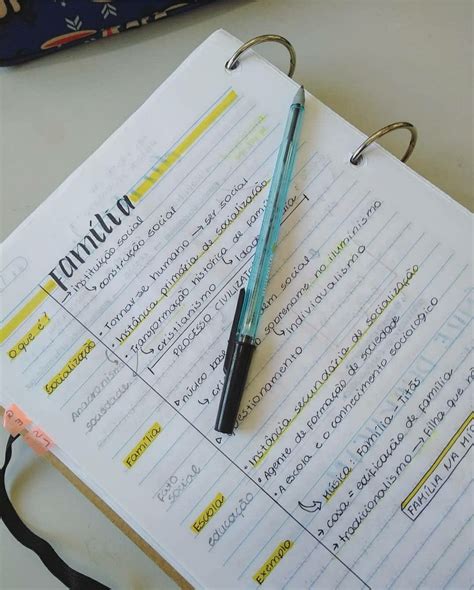 Família
O que é?
→ instituição social
↳ construção social
Socialização
• Tornar-se humano → ser social
• Instância primária de socialização
Anacronismo
sociedade
• Transformação histórica de família
↳ cristianismo
↳ Idade
PROCESSO CIVILIZAT
Família
• núcleo bás em social
↳ cri o sobrenome no iluminismo
↳ individualismo
Fato
social
estionamento
Escola
educação
• Instância secundária de socialização
• Agente de formação de sociedade
• A escola e o conhecimento sociológico
Exemplo
↳ Música: Família - Titãs
→ casa = edificação de família
→ tradicionalismo → Filha que
FAMÍLIA NA